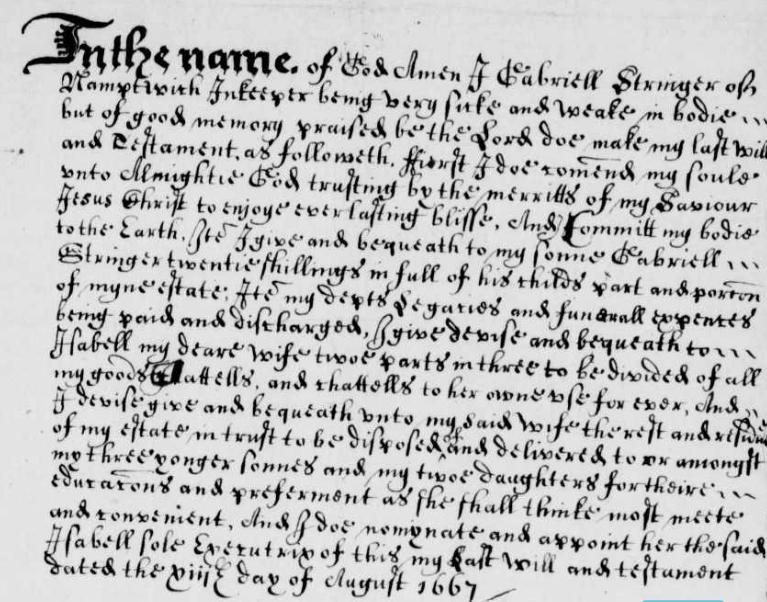 In the name. of God Amen I Gabriell Stringer of
Namptwich Inkeeper being very sicke and weake in bodie
but of good memory praised be the Lord doe make my last will
and Testament, as followeth, ffirst I doe comend my soule
unto Almightie God trusting by the merritts of my Saviour
Jesus Christ to enjoye everlasting blisse, And Committ my bodie
to the Earth, Itē I give and bequeath to my sonne Gabriell
Stringer twentie shillings in full of his childs part and porcon
of myne estate; Itē my depts Legacies and funerall expences
being paid and discharged, I give devise and bequeath to
Isabell my deare wife twoe parts in three to be divided of all
my goods Cattells, and chattells to her owne use for ever, And
I devise give and bequeath unto my said wife the rest and residue
of my estate in trust to be disposed of and delivered to or amongst
my three yonger sonnes and my twoe daughters for theire
educacons and preferment as she shall thinke most meete
and convenient, And I doe nomynate and appoint her the said
Isabell sole Executrix of this my Last will and testament
dated the xiiijth day of August 1667